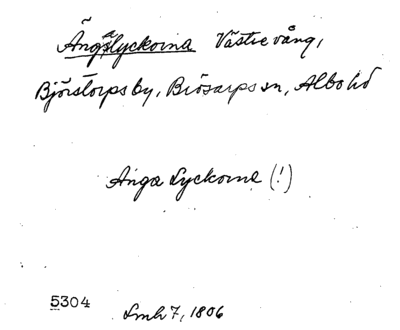 Ängalyckorna Västre vång,
Björstorps by, Brösarps sn, Albo hd
Änga Lyckorne (!)
5304
Lmh 7, 1806